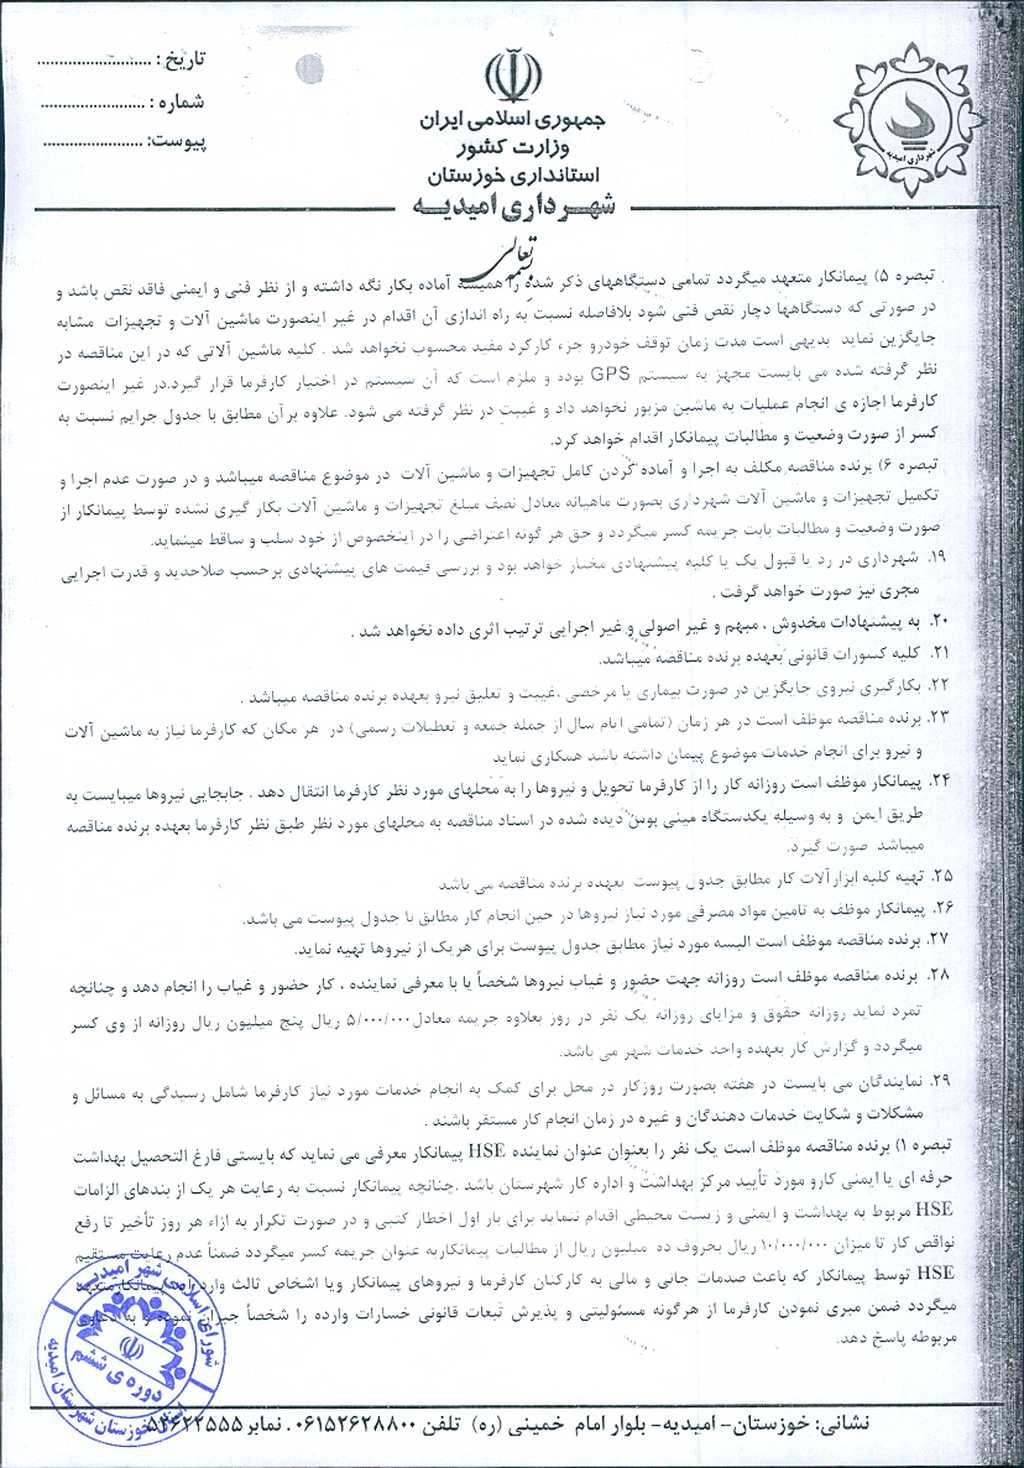 تاریخ : ..........................
شماره : ........................
پیوست: .......................
جمهوری اسلامی ایران
وزارت کشور
استانداری خوزستان
شهرداری امیدیه
شهرداری امیدیه
بسمه تعالی
تبصره ۵) پیمانکار متعهد میگردد تمامی دستگاههای ذکر شده را همیشه آماده بکار نگه داشته و از نظر فنی و ایمنی فاقد نقص باشد و
در صورتی که دستگاهها دچار نقص فنی شود بلافاصله نسبت به راه اندازی آن اقدام در غیر اینصورت ماشین آلات و تجهیزات مشابه
جایگزین نماید بدیهی است مدت زمان توقف خودرو جزء کارکرد مفید محسوب نخواهد شد . کلیه ماشین آلاتی که در این مناقصه در
نظر گرفته شده می بایست مجهز به سیستم GPS بوده و ملزم است که آن سیستم در اختیار کارفرما قرار گیرد.در غیر اینصورت
کارفرما اجازه ی انجام عملیات به ماشین مزبور نخواهد داد و غیبت در نظر گرفته می شود. علاوه برآن مطابق با جدول جرایم نسبت به
کسر از صورت وضعیت و مطالبات پیمانکار اقدام خواهد کرد.
تبصره ۶) برنده مناقصه مکلف به اجرا و آماده کردن کامل تجهیزات و ماشین آلات در موضوع مناقصه میباشد و در صورت عدم اجرا و
تکمیل تجهیزات و ماشین آلات شهرداری بصورت ماهیانه معادل نصف مبلغ تجهیزات و ماشین آلات بکار گیری نشده توسط پیمانکار از
صورت وضعیت و مطالبات بابت جریمه کسر میگردد و حق هر گونه اعتراضی را در اینخصوص از خود سلب و ساقط مینماید.
۱۹. شهرداری در رد یا قبول یک یا کلیه پیشنهادی مختار خواهد بود و بررسی قیمت های پیشنهادی برحسب صلاحدید و قدرت اجرایی
مجری نیز صورت خواهد گرفت .
۲۰. به پیشنهادات مخدوش ، مبهم و غیر اصولی و غیر اجرایی ترتیب اثری داده نخواهد شد .
۲۱. کلیه کسورات قانونی بعهده برنده مناقصه میباشد.
۲۲. بکارگیری نیروی جایگزین در صورت بیماری یا مرخصی ،غیبت و تعلیق نیرو بعهده برنده مناقصه میباشد .
۲۳. برنده مناقصه موظف است در هر زمان (تمامی ایام سال از جمله جمعه و تعطیلات رسمی) در هر مکان که کارفرما نیاز به ماشین آلات
و نیرو برای انجام خدمات موضوع پیمان داشته باشد همکاری نماید
۲۴. پیمانکار موظف است روزانه کار را از کارفرما تحویل و نیروها را به محلهای مورد نظر کارفرما انتقال دهد . جابجایی نیروها میبایست به
طریق ایمن و به وسیله یکدستگاه مینی بوس دیده شده در اسناد مناقصه به محلهای مورد نظر طبق نظر کارفرما بعهده برنده مناقصه
میباشد صورت گیرد.
۲۵. تهیه کلیه ابزارآلات کار مطابق جدول پیوست بعهده برنده مناقصه می باشد
۲۶. پیمانکار موظف به تامین مواد مصرفی مورد نیاز نیروها در حین انجام کار مطابق با جدول پیوست می باشد.
۲۷. برنده مناقصه موظف است البسه مورد نیاز مطابق جدول پیوست برای هریک از نیروها تهیه نماید.
۲۸. برنده مناقصه موظف است روزانه جهت حضور و غیاب نیروها شخصاً یا با معرفی نماینده ، کار حضور و غیاب را انجام دهد و چنانچه
تمرد نماید روزانه حقوق و مزایای روزانه یک نفر در روز بعلاوه جریمه معادل ۵/۰۰۰/۰۰۰ ریال پنج میلیون ریال روزانه از وی کسر
میگردد و گزارش کار بعهده واحد خدمات شهر می باشد.
۲۹. نمایندگان می بایست در هفته بصورت روزکار در محل برای کمک به انجام خدمات مورد نیاز کارفرما شامل رسیدگی به مسائل و
مشکلات و شکایت خدمات دهندگان و غیره در زمان انجام کار مستقر باشند .
تبصره ۱) برنده مناقصه موظف است یک نفر را بعنوان عنوان نماینده HSE پیمانکار معرفی می نماید که بایستی فارغ التحصیل بهداشت
حرفه ای یا ایمنی کارو مورد تأیید مرکز بهداشت و اداره کار شهرستان باشد .چنانچه پیمانکار نسبت به رعایت هر یک از بندهای الزامات
HSE مربوط به بهداشت و ایمنی و زیست محیطی اقدام ننماید برای بار اول اخطار کتبی و در صورت تکرار به ازاء هر روز تأخیر تا رفع
نواقص کار تا میزان ۱۰/۰۰۰/۰۰۰ ریال بحروف ده میلیون ریال از مطالبات پیمانکاربه عنوان جریمه کسر میگردد ضمناً عدم رعایت مستقیم
HSE توسط پیمانکار که باعث صدمات جانی و مالی به کارکنان کارفرما و نیروهای پیمانکار ویا اشخاص ثالث وارد پیمانکارمتعهد
میگردد ضمن مبری نمودن کارفرما از هرگونه مسئولیتی و پذیرش تبعات قانونی خسارات وارده را شخصاً جبران نموده و به دعاوی
مربوطه پاسخ دهد.
شورای اسلامی شهر امیدیه
دوره ی ششم
استان خوزستان شهرستان امیدیه
نشانی: خوزستان- امیدیه- بلوار امام خمینی (ره) تلفن ۰۶۱۵۲۶۲۸۸۰۰. نمابر ۵۲۶۲۲۵۵۵